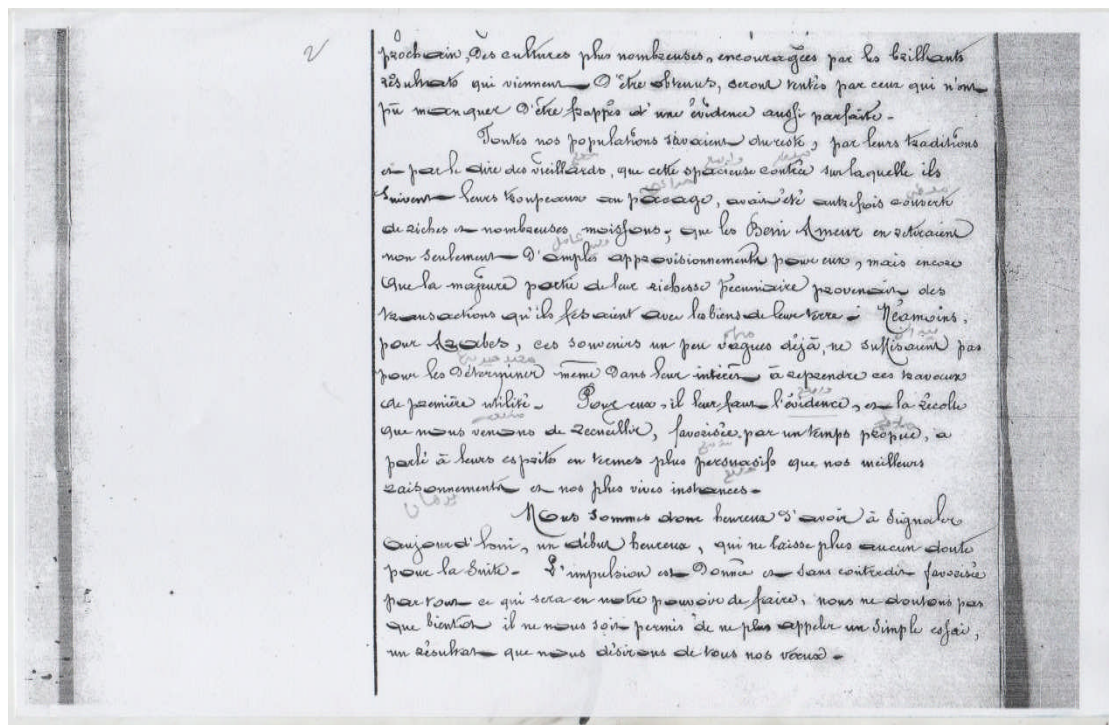 2
prochain, des cultures plus nombreuses, encouragées par les brillants
résultats qui viennent d'être obtenus, seront tentés par ceux qui n'ont
pu manquer d'être frappés d'une évidence aussi parfaite.
Toutes nos populations savaient du reste, par leurs traditions
et par le dire des vieillards, que cette spacieuse contrée sur laquelle ils
suivent leurs troupeaux au pacage, avait été autrefois couverte
de riches et nombreuses moissons; que les Beni Ameur en retiraient
non seulement d'amples approvisionnements pour eux, mais encore
que la majeure partie de leur richesse pécuniaire provenait des
transactions qu'ils fesaient avec les biens de leur terre. Néamoins,
pour Arabes, ces souvenirs un peu vagues déjà, ne suffisaient pas
pour les déterminer même dans leur intérêt à reprendre ces travaux
de première utilité. Pour eux, il leur faut l'évidence, et la récolte
que nous venons de recueillir, favorisée par un temps propice, a
parlé à leurs esprits en termes plus persuasifs que nos meilleurs
raisonnements et nos plus vives instances.
برهان
Nous sommes donc heureux d'avoir à signaler
aujourd'hui, un début heureux, qui ne laisse plus aucun doute
pour la suite. L'impulsion est donnée et sans contredit favorisée
par tout ce qui sera en notre pouvoir de faire, nous ne doutons pas
que bientôt il ne nous soit permis de ne plus appeler un simple essai,
un résultat que nous désirons de tous nos vœux.